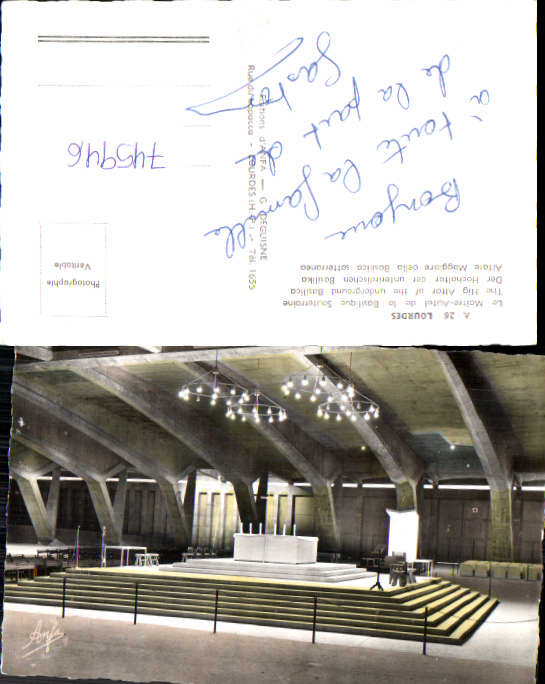 A. 26 LOURDES
Le Maître-Autel de la Basilique Souterraine
The Hig Altor of the underground Basilica
Der Hochaltar der unterirdischen Basilika
Altare Maggiore della Basilica sotterranea
Bonjour
à toute la famille
de la part de
Gaston
Editions d'ANFA — G. DEGUISNE
LOURDES (H.-P.) - Tél. 1655
Photographie
Véritable
745946
Anfa